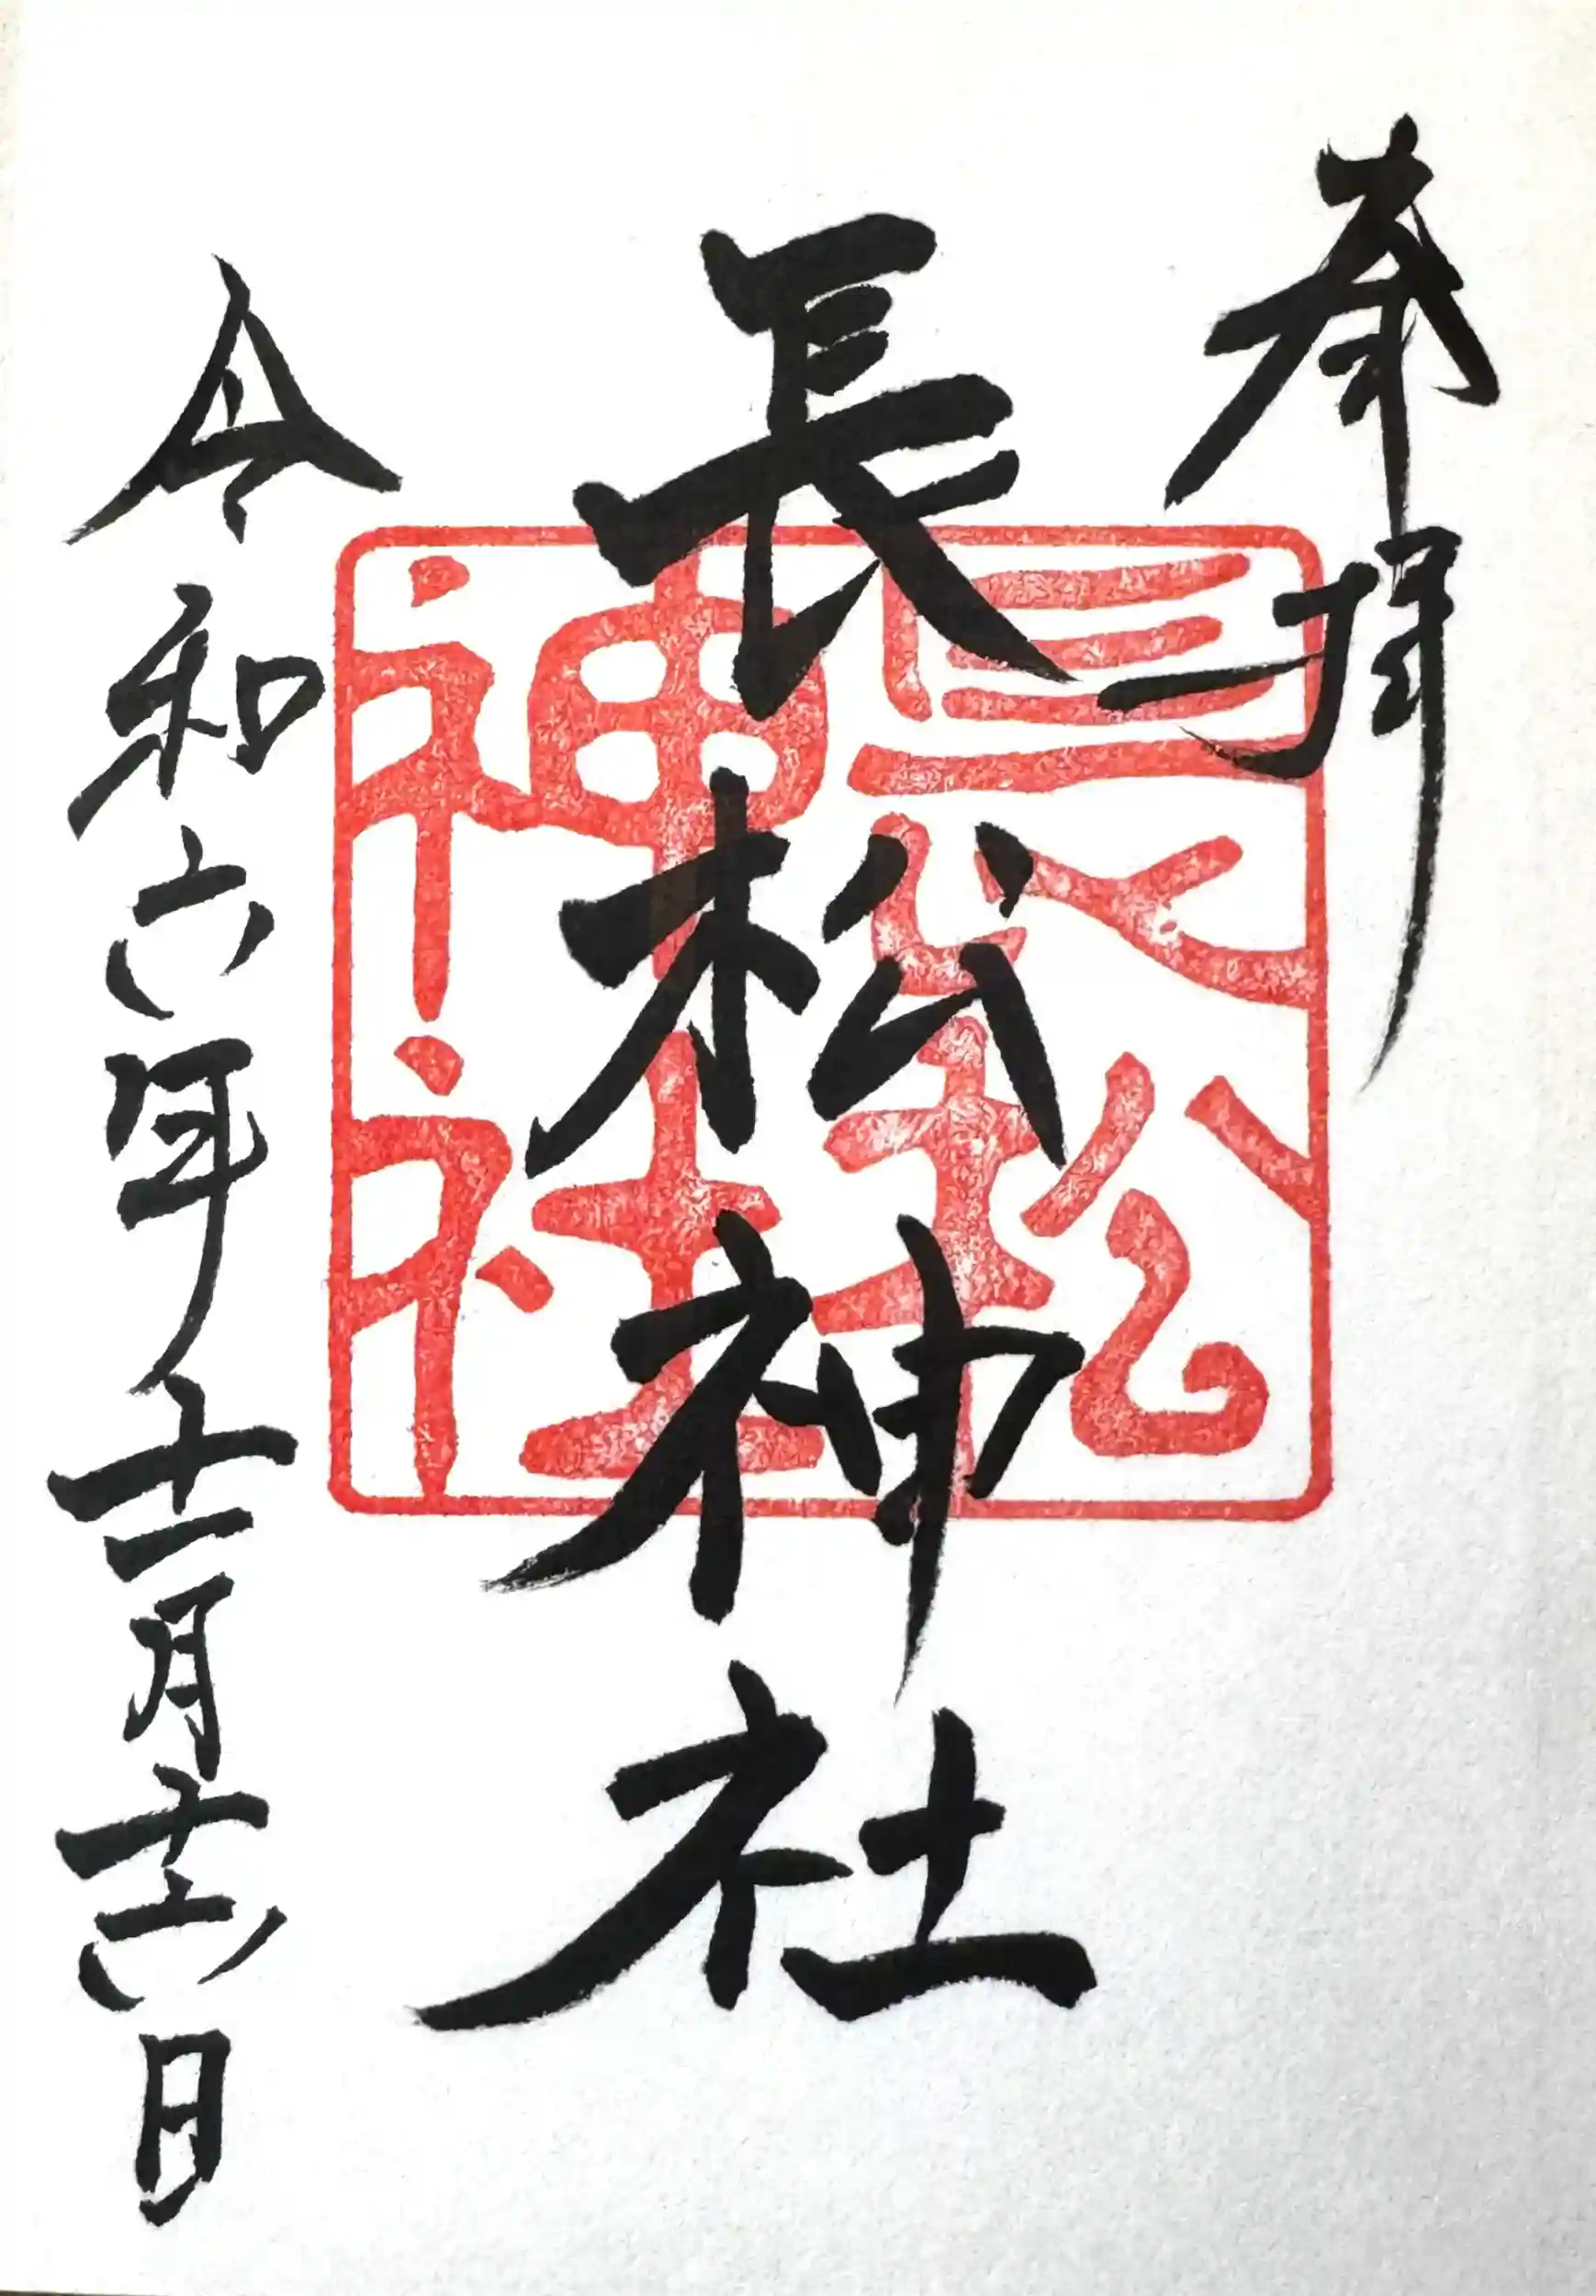 奉拝
長松神社
令和六年十一月十六日
長松
神社